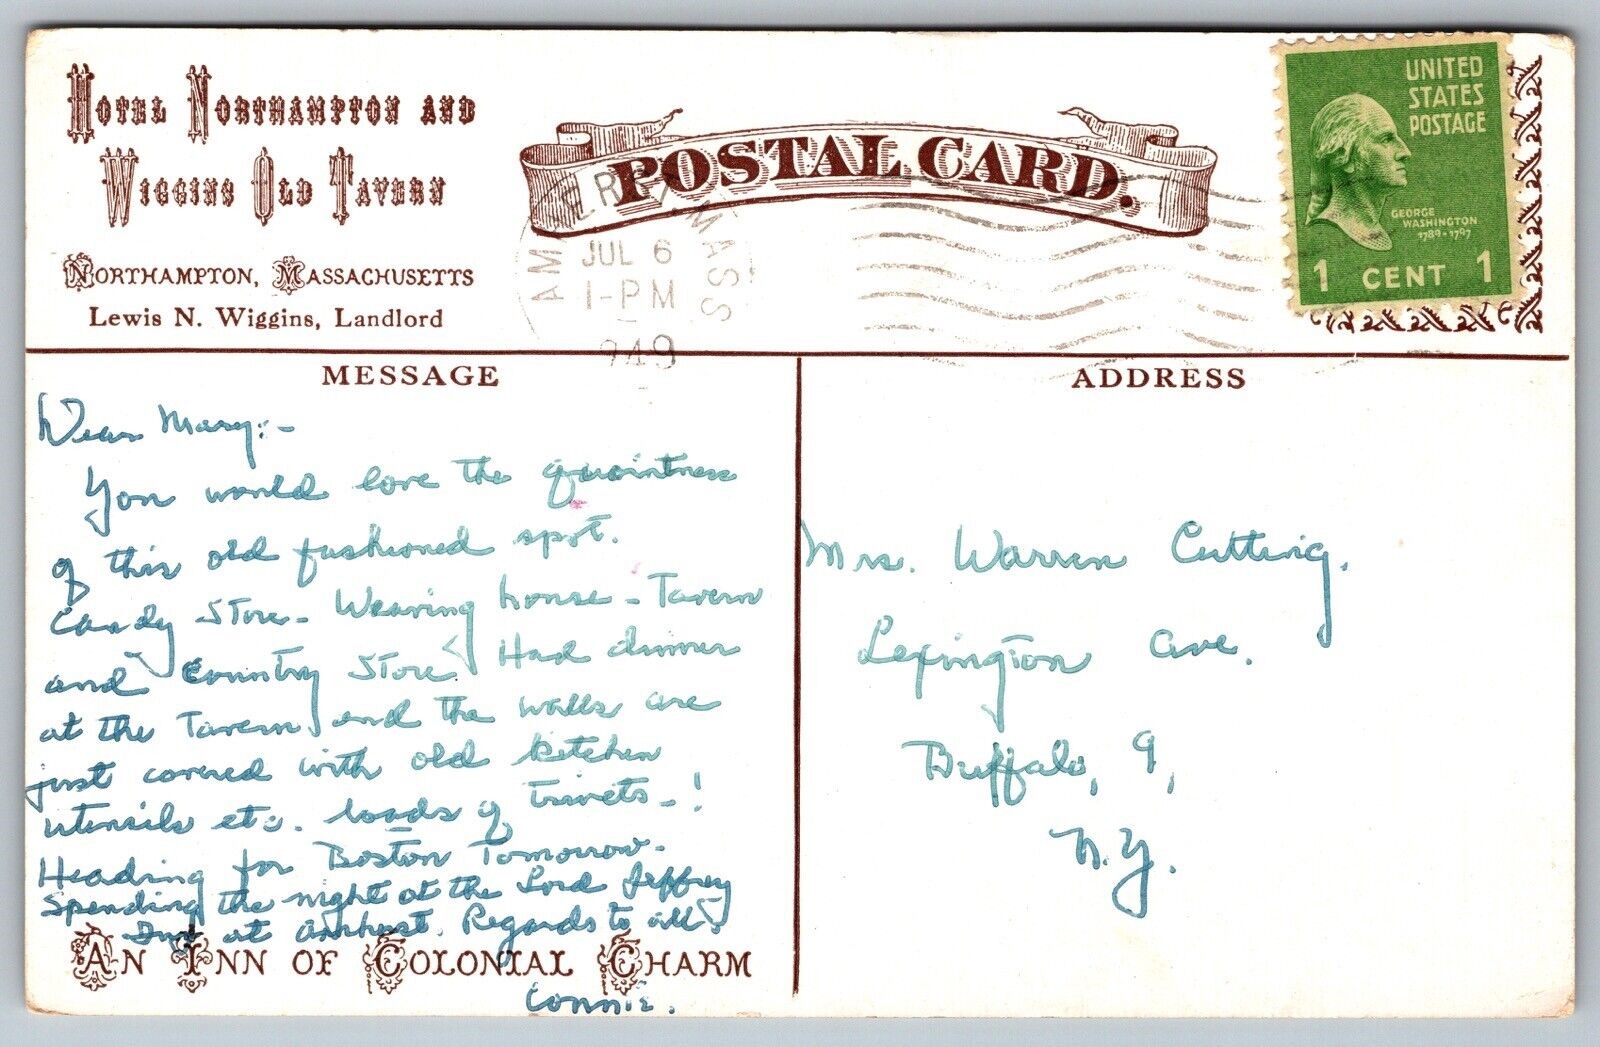 HOTEL NORTHAMPTON AND
WIGGINS OLD TAVERN
NORTHAMPTON, MASSACHUSETTS
Lewis N. Wiggins, Landlord
POSTAL CARD.
AMHERST MASS
JUL 6
1-PM
1949
UNITED
STATES
POSTAGE
GEORGE
WASHINGTON
1789-1797
1 CENT 1
MESSAGE
Dear Mary:-
You would love the quaintness
of this old fashioned spot.
Candy Store - Weaving house - Tavern
and Country Store. Had dinner
at the Tavern and the walls are
just covered with old kitchen
utensils etc. loads of trivets - !
Heading for Boston Tomorrow.
Spending the night at the Lord Jeffrey
Inn at Amherst. Regards to all.
AN INN OF COLONIAL CHARM
Connie.
ADDRESS
Mrs. Warren Cutting.
Lexington Ave.
Buffalo, 9,
N.Y.